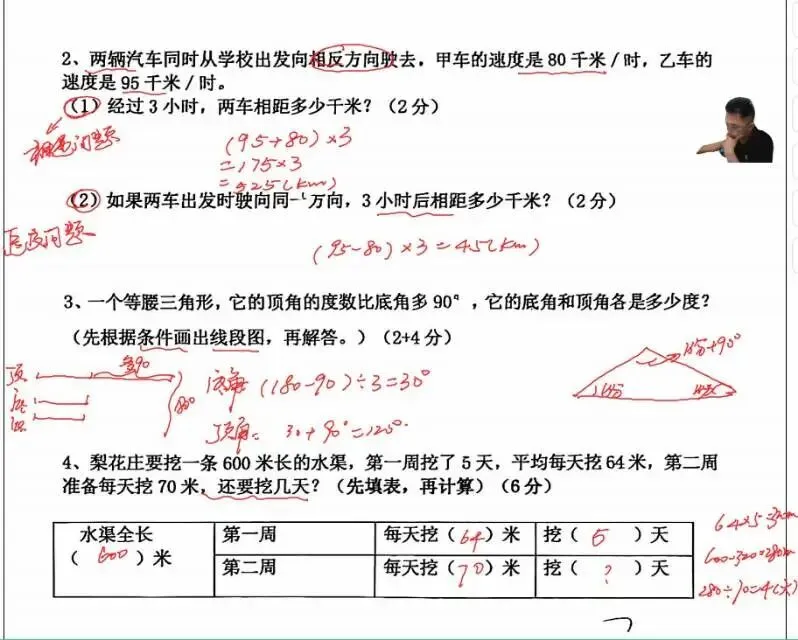 2、两辆汽车同时从学校出发向相反方向驶去，甲车的速度是 80 千米／时，乙车的
速度是 95 千米／时。
（1）经过 3 小时，两车相距多少千米？（2 分）
相遇问题
(95+80)×3
=175×3
=525(km)
（2）如果两车出发时驶向同一方向，3 小时后相距多少千米？（2 分）
问题
(95-80)×3=45(km)
3、一个等腰三角形，它的顶角的度数比底角多 90°，它的底角和顶角各是多少度？
（先根据条件画出线段图，再解答。）（2+4 分）
多90
1份+90°
顶
底
底
180
底角 (180-90)÷3=30°
1份
1份
顶角= 30+90°=120°
4、梨花庄要挖一条 600 米长的水渠，第一周挖了 5 天，平均每天挖 64 米，第二周
准备每天挖 70 米，还要挖几天？（先填表，再计算）（6 分）
水渠全长 第一周 每天挖（64）米 挖（5）天
（600）米 第二周 每天挖（70）米 挖（？）天
600-320=280m
280÷70=4(天)